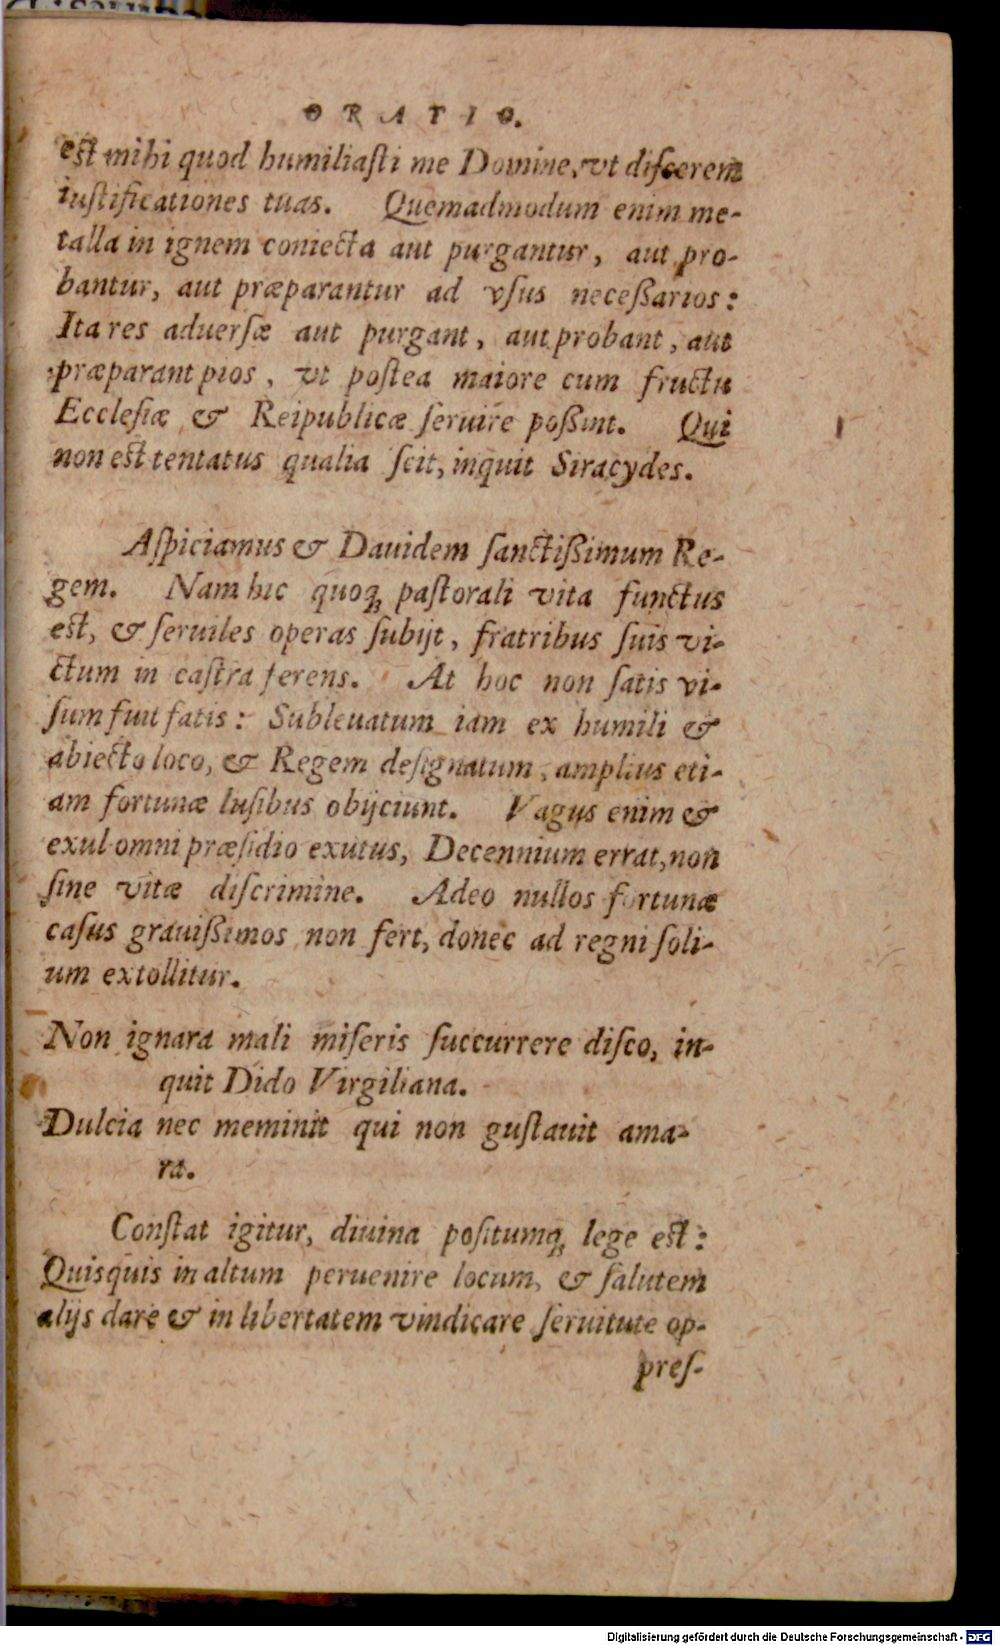 ORATIO.
est mihi quod humiliaſti me Domine, vt diſcerem
iuſtificationes tuas. Quemadmodum enim me-
talla in ignem coniecta aut purgantur, aut pro-
bantur, aut præparantur ad vſus neceßarios:
Ita res aduerſæ aut purgant, aut probant, aut
præparant pios, vt poſtea maiore cum fructu
Eccleſiæ & Reipublicæ ſeruire poßint. Qui
non est tentatus qualia ſcit, inquit Siracydes.
Aſpiciamus & Dauidem ſanctißimum Re-
gem. Nam hic quoqꝫ paſtorali vita functus
est, & ſeruiles operas ſubijt, fratribus ſuis vi-
ctum in caſtra ferens. At hoc non ſatis vi-
ſum fuit fatis: Subleuatum iam ex humili &
abiecto loco, & Regem deſignatum, amplius eti-
am fortunæ luſibus obijciunt. Vagus enim &
exul omni præſidio exutus, Decennium errat, non
ſine vitæ diſcrimine. Adeo nullos fortunæ
caſus grauißimos non fert, donec ad regni ſoli-
um extollitur.
Non ignara mali miſeris ſuccurrere diſco, in-
quit Dido Virgiliana.
Dulcia nec meminit qui non guſtauit ama-
ra.
Conſtat igitur, diuina poſitumqꝫ lege est:
Quisquis in altum peruenire locum, & ſalutem
alijs dare & in libertatem vindicare ſeruitute op-
preſ-
Digitalisierung gefördert durch die Deutsche Forschungsgemeinschaft - DFG